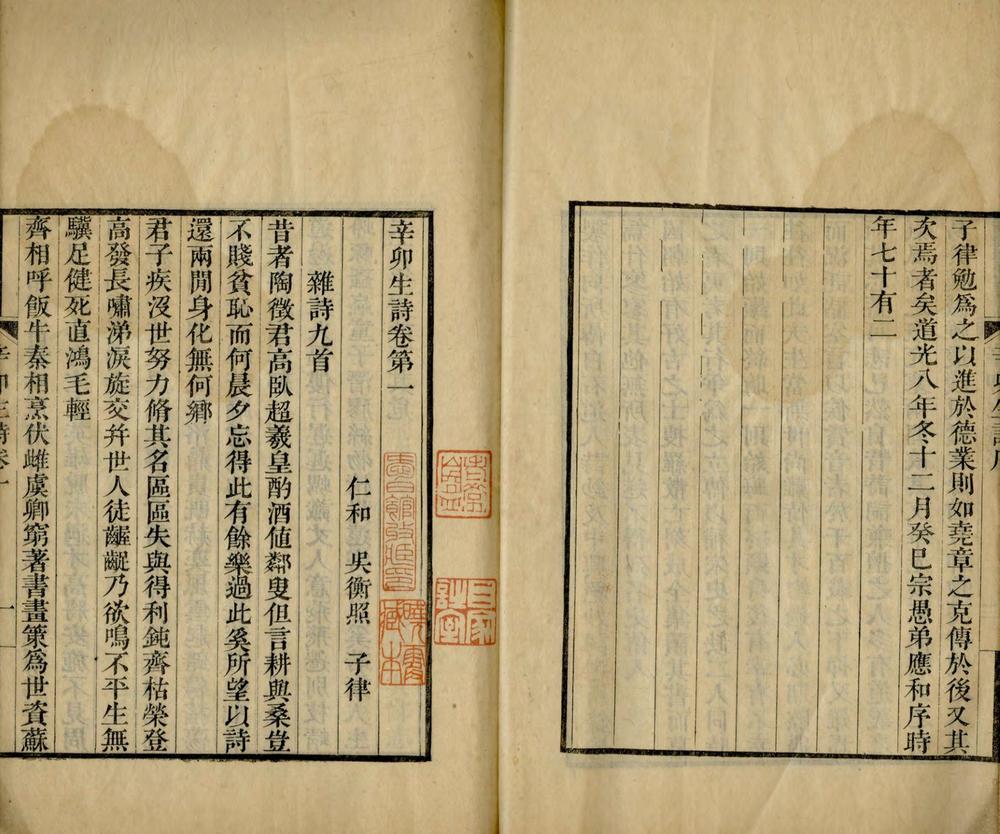 子律勉爲之以進於德業則如堯章之克傳於後又其
次焉者矣道光八年冬十二月癸巳宗愚弟應和序時
年七十有二
辛卯生詩卷第一
仁和　吳衡照　子律
雜詩九首
昔者陶徵君高臥超羲皇酌酒値鄰叟但言耕與桑豈
不賤貧恥而何晨夕忘得此有餘樂過此奚所望以詩
還兩閒身化無何鄉
君子疾沒世努力脩其名區區失與得利鈍齊枯榮登
高發長嘯涕淚旋交幷世人徒齷齪乃欲鳴不平生無
驥足健死直鴻毛輕
齊相呼飯牛秦相烹伏雌虞卿窮著書畫策爲世資蘇
辛卯生詩卷一
一